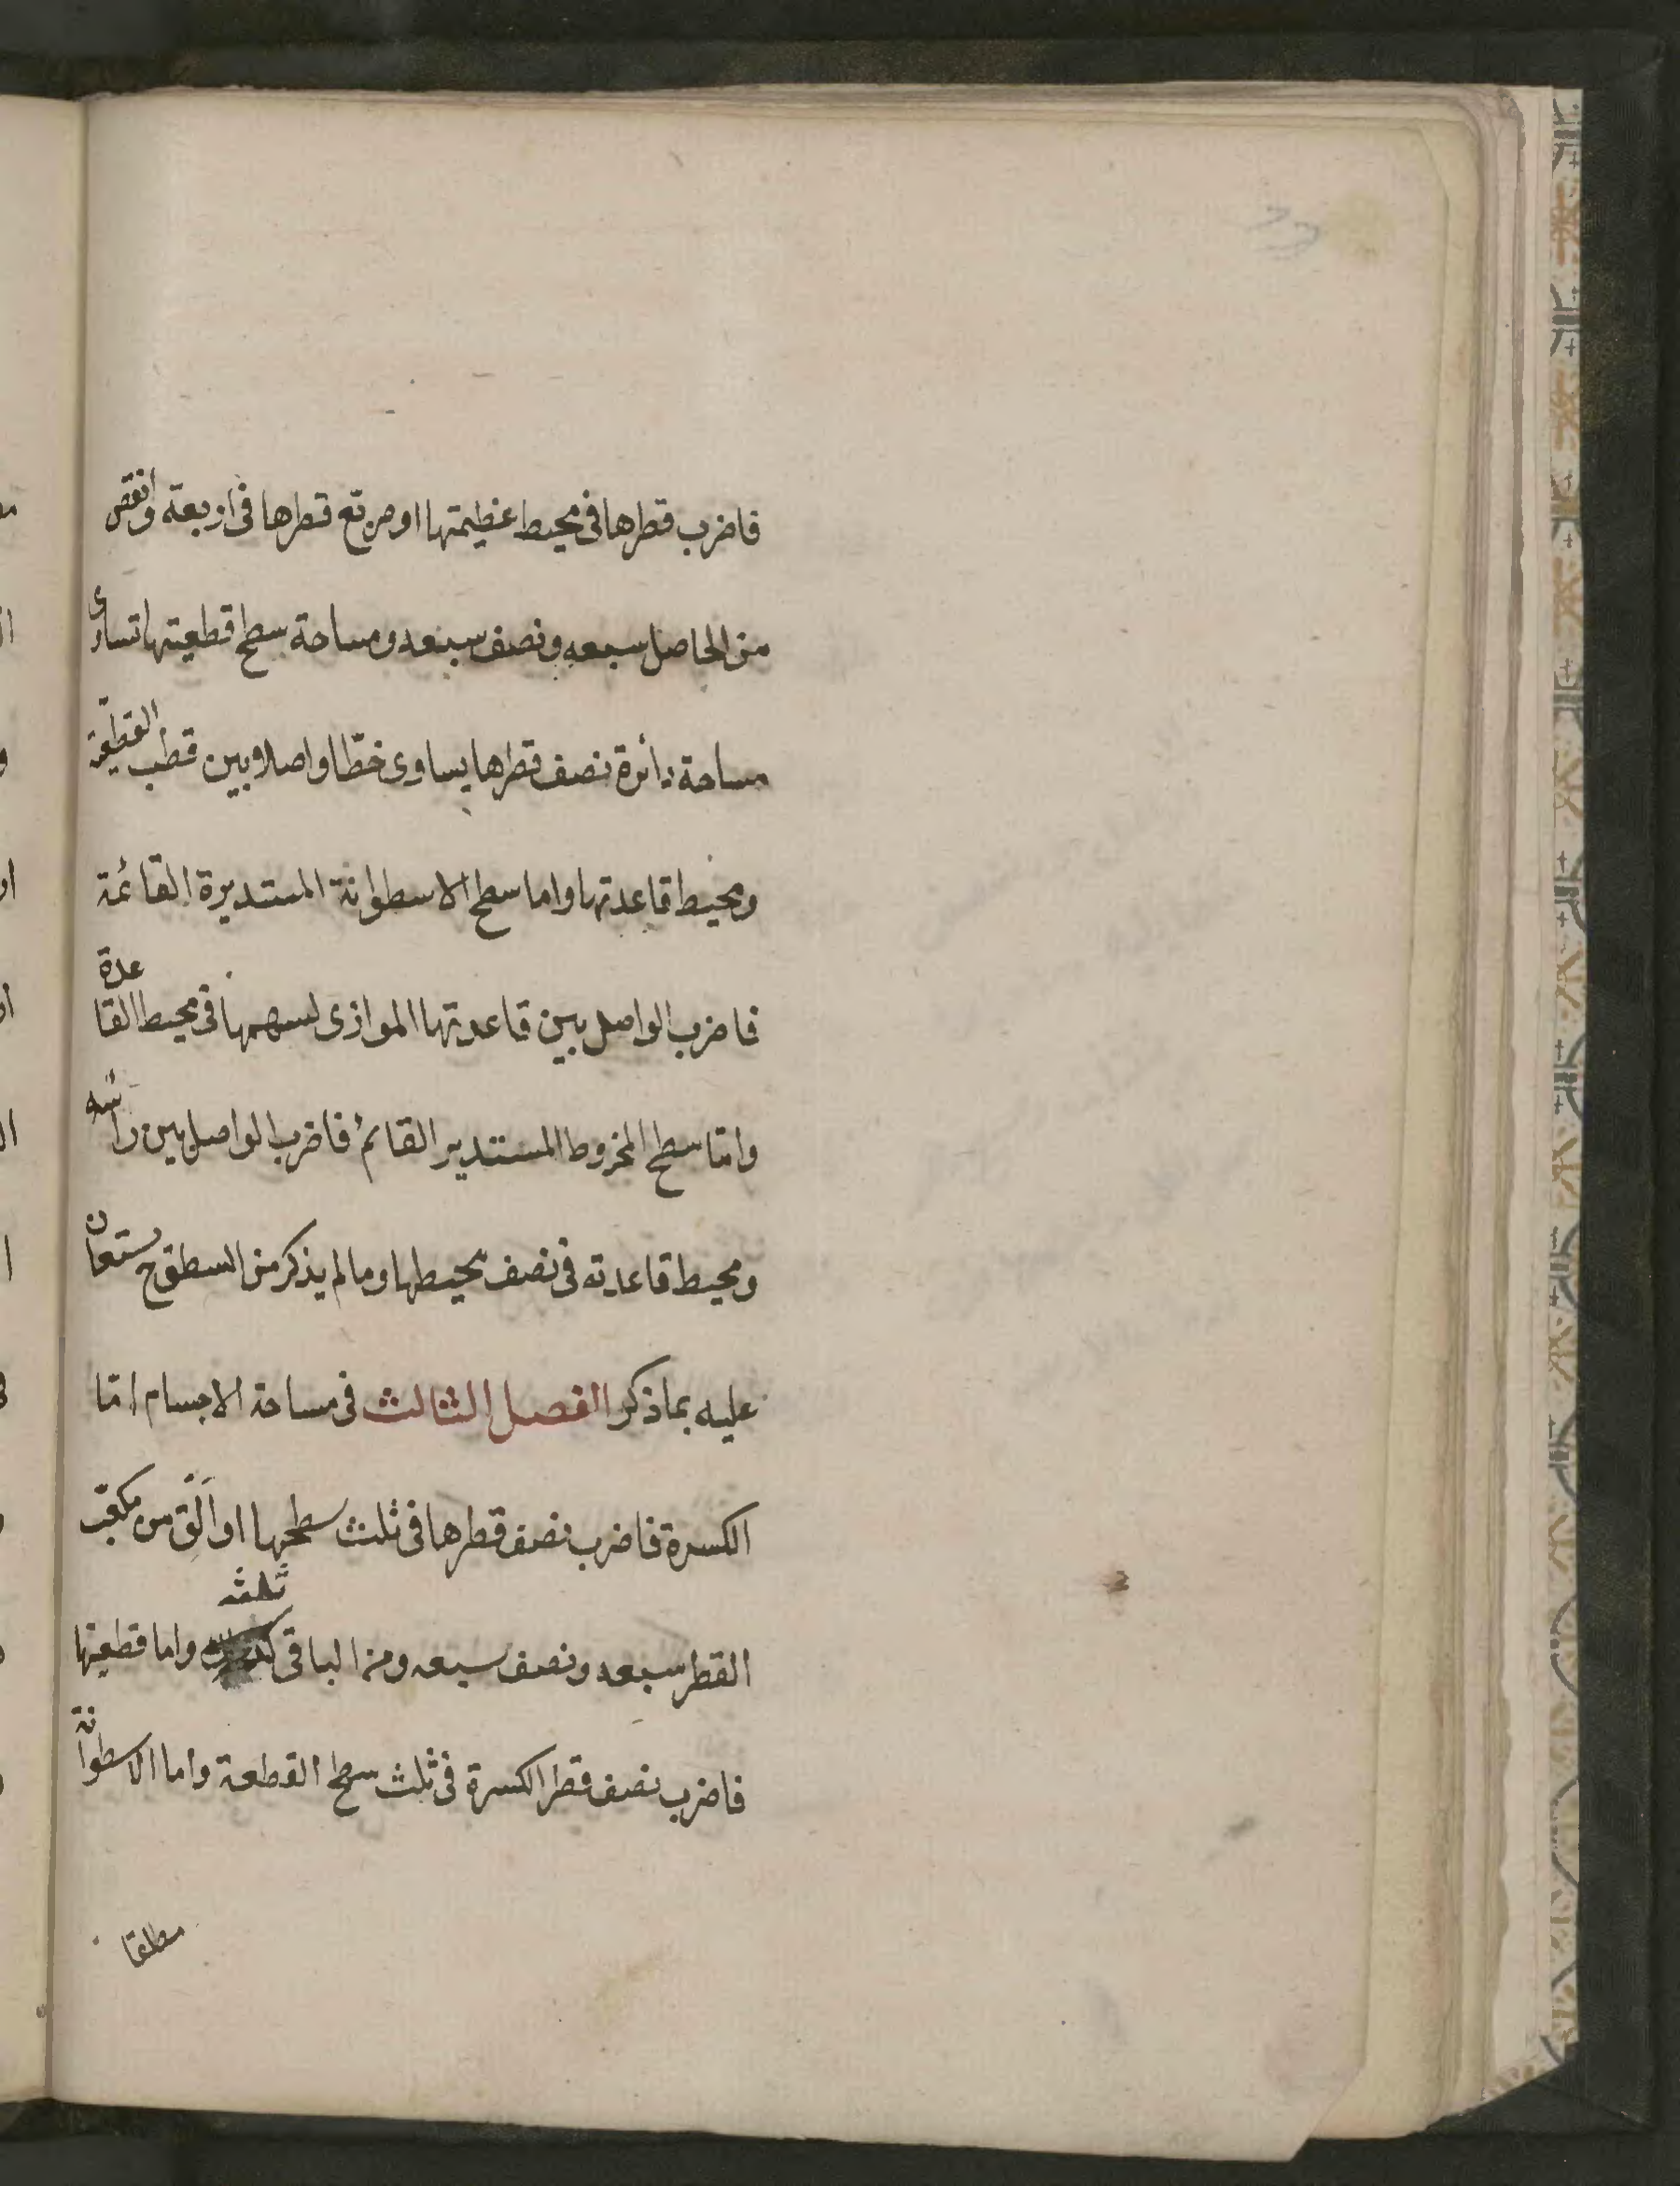 فاضرب قطرها فى محيط عظيمتها او مربع قطرها فى اربعة وانقص
من الحاصل سبعه ونصف سبعه ومساحة سطح قطعيتها تساوى
مساحة دائرة نصف قطرها يساوى خطّا واصلا وبين قطب القطعية
ومحيط قاعدتها واما سطح الاسطوانة المستديرة القائمة
فاضرب الواصل بين قاعدتها الموازى لسهمها فى محيط القاعدة
وامّا سطح المخروط المستدير القائم فاضرب الواصل بين رأسه
ومحيط قاعدته فى نصف محيطها وما لم يذكر من السطوح يستعان
عليه بما ذكر الفصل الثالث فى مساحة الاجسام امّا
الكسرة فاضرب نصف قطرها فى ثلث سطحها او الق من مكعّب
القطر سبعه ونصف سبعه ومن الباقى ثلثه واما قطعيتها
فاضرب نصف قطر الكسرة فى ثلث سطح القطعة واما الاسطوانة
مطلقا